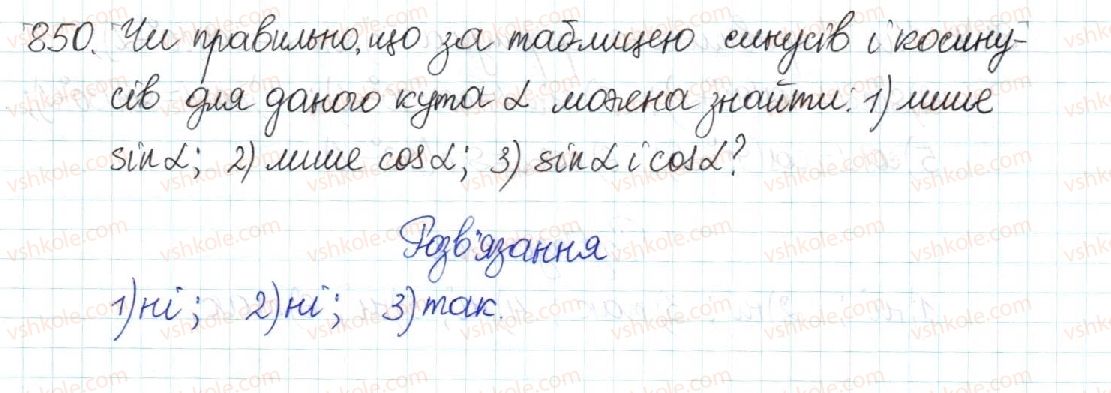 850. Чи правильно, що за таблицею синусів і косину-
сів для даного кута α можна знайти: 1) лише
sin α; 2) лише cos α; 3) sin α і cos α?
Розв'язання
1) ні; 2) ні; 3) так.